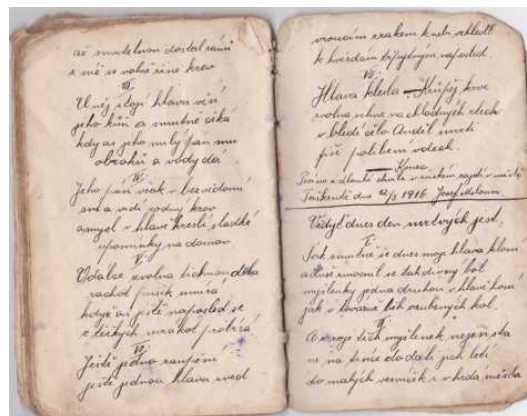 až smrtelnou dostal ránu
z níž se valně řine krev
III.
U něj stojí hlava
jeho kůň a smutně čeká
kdy as jeho milý pán mu
obroků a vody dá
IV.
Jeho pán však v bezvědomí
sní a vidí rodný krov
a mysl v hlavě kreslí sladké
vzpomínky na domov
V.
Odálce zvolna tichnou děla
rachot pušek umírá
když as ještě naposled se
z těžkých mrákot probírá
VI.
Ještě jednou
ještě jednou hlava zved
vroucím zrakem k nebi vzhledl
k hvězdám třpytným naposled.
VII.
Hlava klesla – Krůpěj krve
volna schne na chladných rtech
v bledé čelo Anděl smrti
píše polibení vdech.
Konec
Psáno v dlouhé chvíli v ruském zajetí v městě
Taškendě dne 22/3 1916. Josef
Vždyť dnes den mrtvých jest.
I.
Tak smutně se dnes moje hlava kloní
a duše zmocnil se tak divný bol
myšlenky jedna druhou v hlavě honí
jak v továrně běh ozubených kol.
II.
A z rojů těch myšlenek nejen sta
ne na tisíce dodati jich letí
do malých vesniček i v hrdá města